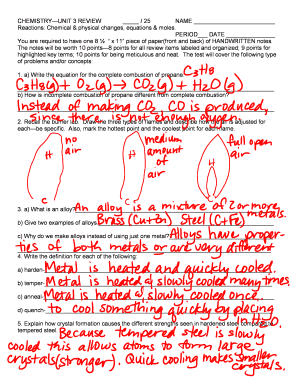 CHEMISTRY—UNIT 3 REVIEW ____ / 25 NAME
Reactions: Chemical & physical changes, equations & moles.
PERIOD DATE
You are required to have one 8 ½ " x 11" piece of paper(front and back) of HANDWRITTEN notes.
The notes will be worth 10 points—8 points for all review items labeled and organized; 9 points for
highlighted key terms; 10 points for being meticulous and neat. The test will cover the following type
of problems and/or concepts:
1. a) Write the equation for the complete combustion of propane. C3H8
C3H8(g) + O2(g) → CO2(g) + H2O(g)
b) How is incomplete combustion of propane different from complete combustion?
Instead of making CO2, CO is produced,
since there is not enough oxygen.
2. Recall the burner lab. Draw the three types of flames and describe how the air is adjusted for
each—be specific. Also, mark the hottest point and the coolest point for each flame.
no air
medium amount of air
full open air
H
H
H
C
C
3. a) What is an alloy? An alloy is a mixture of 2 or more
metals.
b) Give two examples of alloys. Brass (Cu+Zn) Steel (C+Fe)
c) Why do we make alloys instead of using just one metal? Alloys have proper-
ties of both metals or are very different
4. Write the definition for each of the following:
a) harden- Metal is heated and quickly cooled.
b) temper- Metal is heated & slowly cooled many times.
c) anneal- Metal is heated & slowly cooled once.
d) quench- to cool something quickly by placing
in H2O.
5. Explain how crystal formation causes the different strengths seen in hardened steel compared to
tempered steel.
Because tempered steel is slowly
cooled this allows atoms to form large
crystals (stronger). Quick cooling makes smaller
crystals.